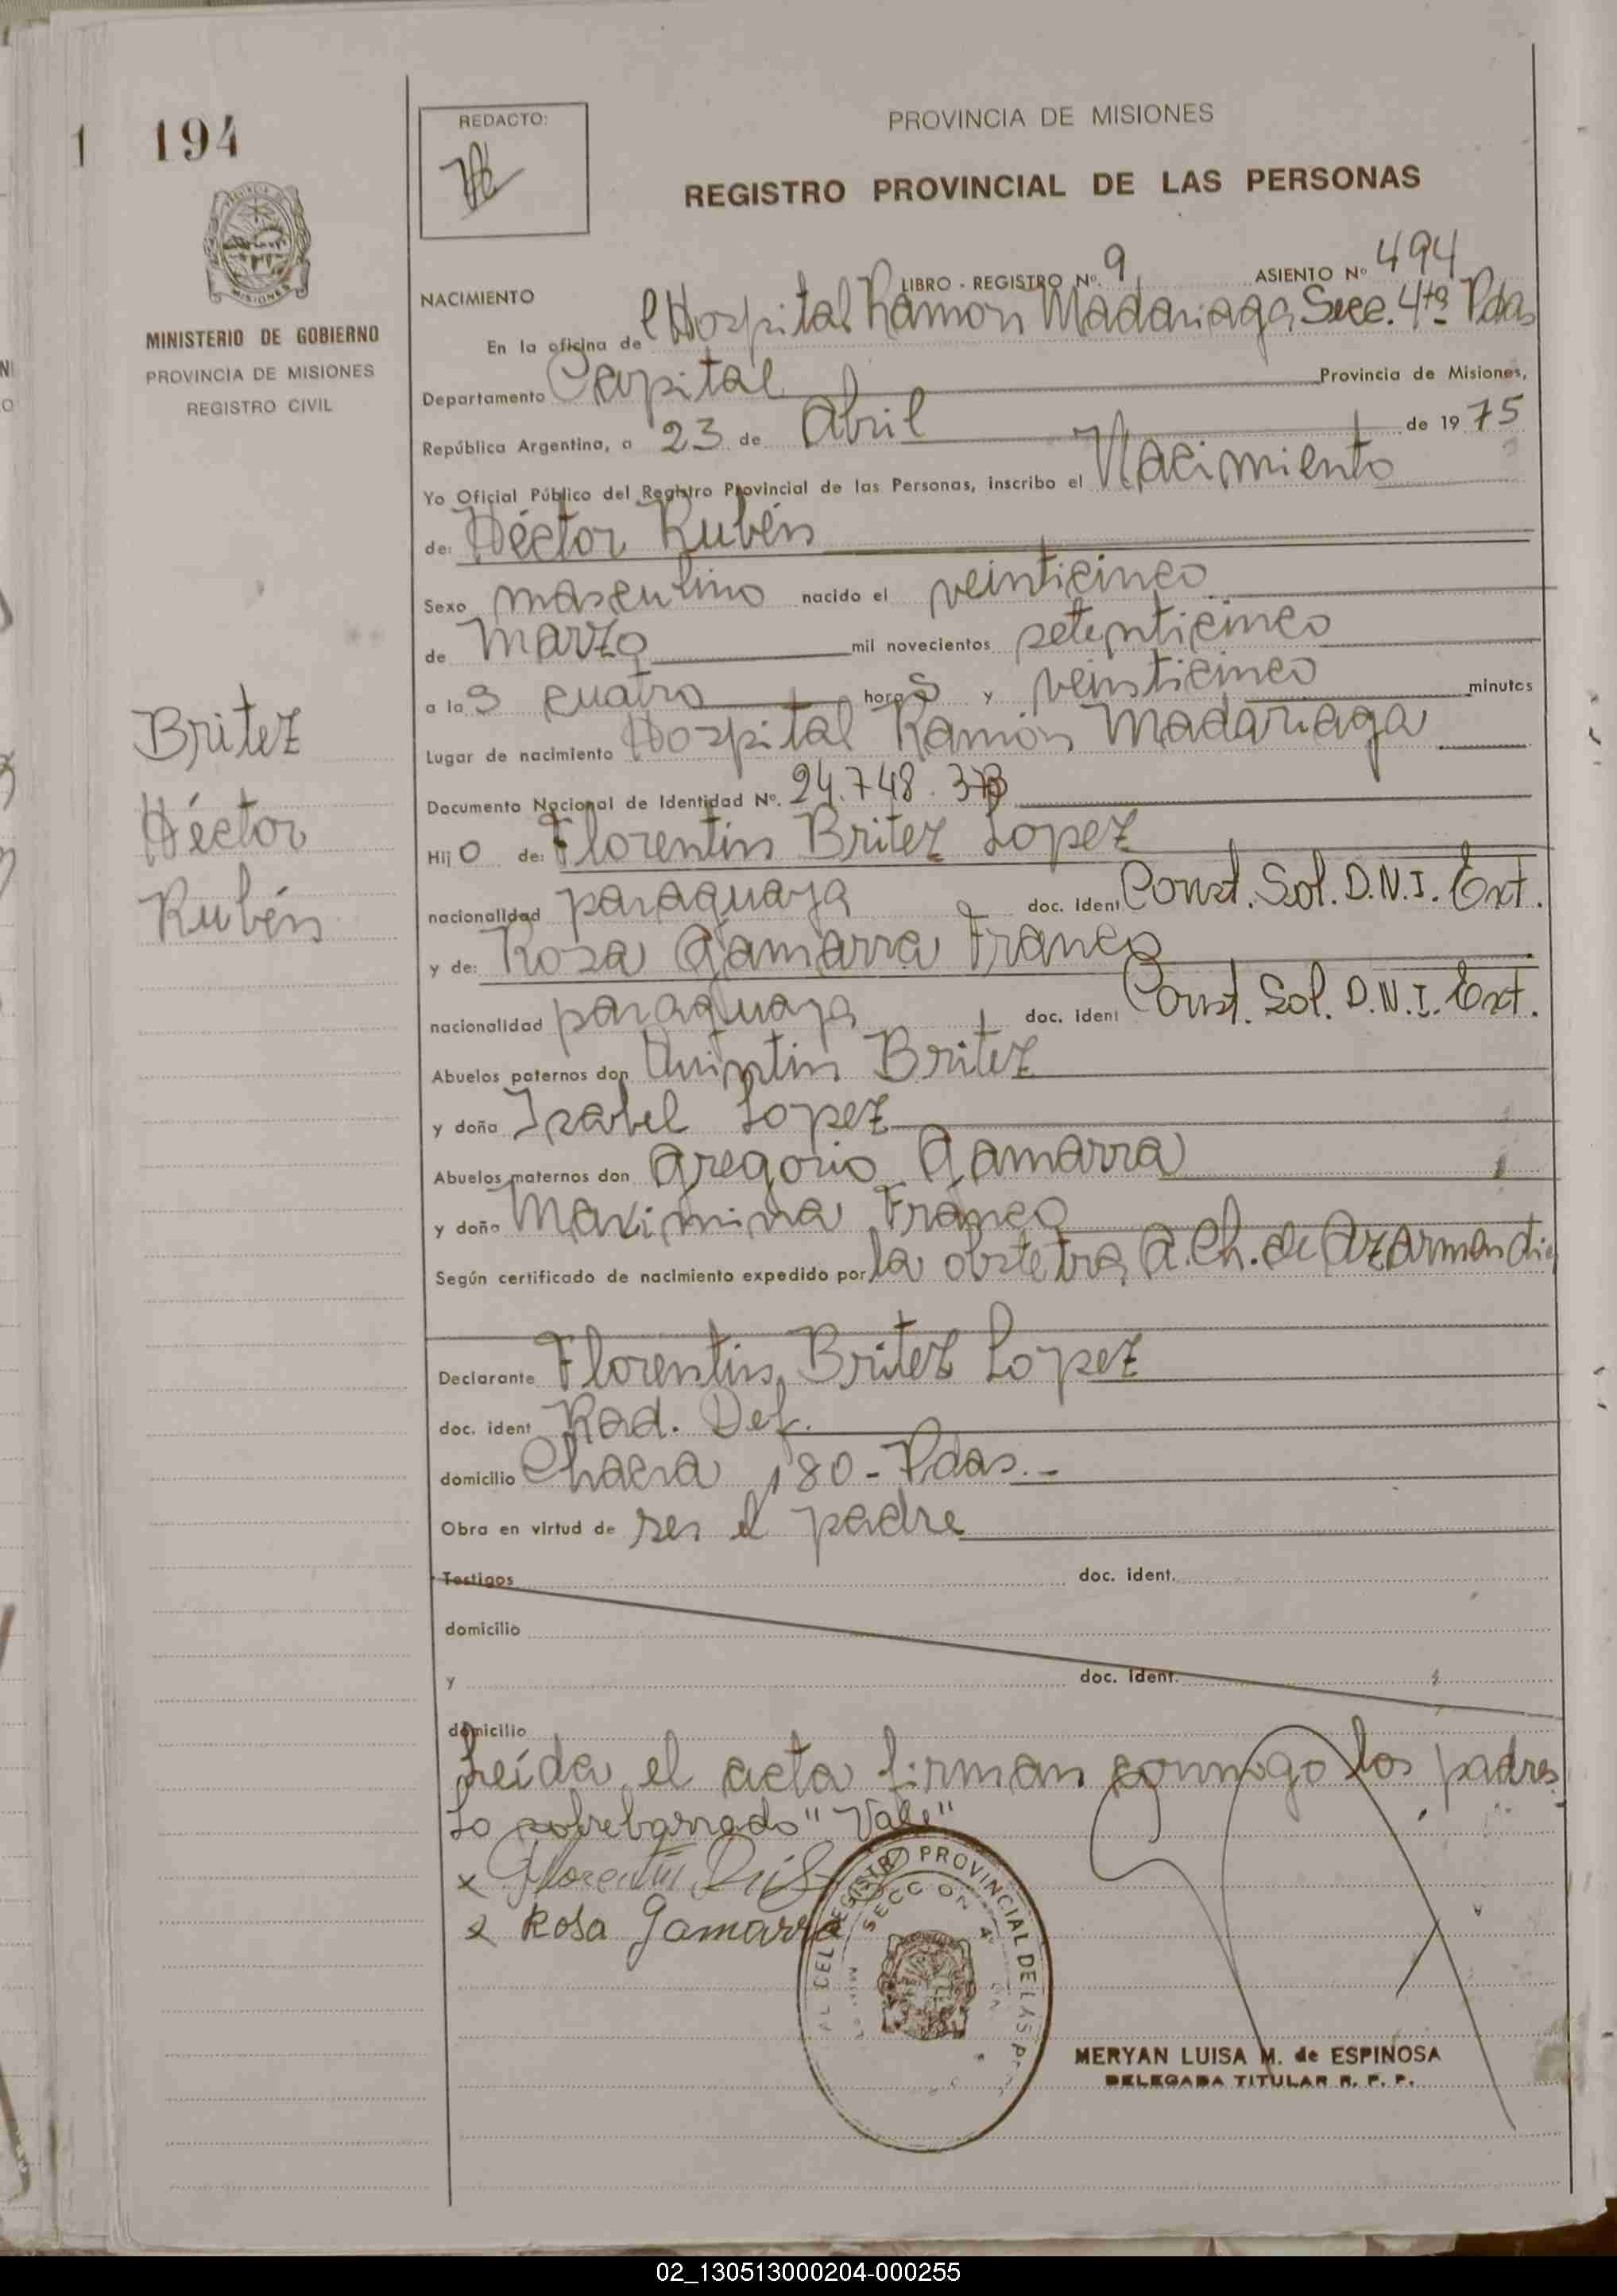 1 194
REDACTO:
PROVINCIA DE MISIONES
REGISTRO PROVINCIAL DE LAS PERSONAS
MISIONES
MINISTERIO DE GOBIERNO
PROVINCIA DE MISIONES
REGISTRO CIVIL
Britez
Héctor
Rubén
LIBRO - REGISTRO Nº. 9 ASIENTO Nº 494
NACIMIENTO
En la oficina de l Hospital Ramón Madariaga Secc. 4ta Pdas
Departamento Capital Provincia de Misiones,
República Argentina, a 23 de Abril de 19 75
Yo Oficial Público del Registro Provincial de las Personas, inscribo el Nacimiento
de: Héctor Rubén
Sexo masculino nacido el veinticinco
de Marzo mil novecientos setenticinco
a la s cuatro hora s y veinticinco minutos
Lugar de nacimiento Hospital Ramón Madariaga
Documento Nacional de Identidad Nº. 24.748.
Hij o de: Florentin Britez Lopez
nacionalidad paraguaya doc. ident Const. Sol. D.N.I. Ext.
y de: Rosa Gamarra Franco
nacionalidad paraguaya doc. ident Const. Sol. D.N.I. Ext.
Abuelos paternos don Quintin Britez
y doña Isabel Lopez
Abuelos maternos don Gregorio Gamarra
y doña Maximina Franco
Según certificado de nacimiento expedido por la obstetra A. Ch. de Azarmendia
Declarante Florentin Britez Lopez
doc. ident Rad. Def.
domicilio Chacra 180 - Pdas. -
Obra en virtud de ser el padre
Testigos doc. ident.
domicilio
y doc. ident.
domicilio
Leída el acta firman conmigo los padres.
Lo sobrebarrado "Vale"
x Florentin
x Rosa Gamarra
REGISTRO PROVINCIAL DE LAS
SECCION 4ª
MERYAN LUISA M. de ESPINOSA
DELEGADA TITULAR R. P. P.
02_130513000204-000255